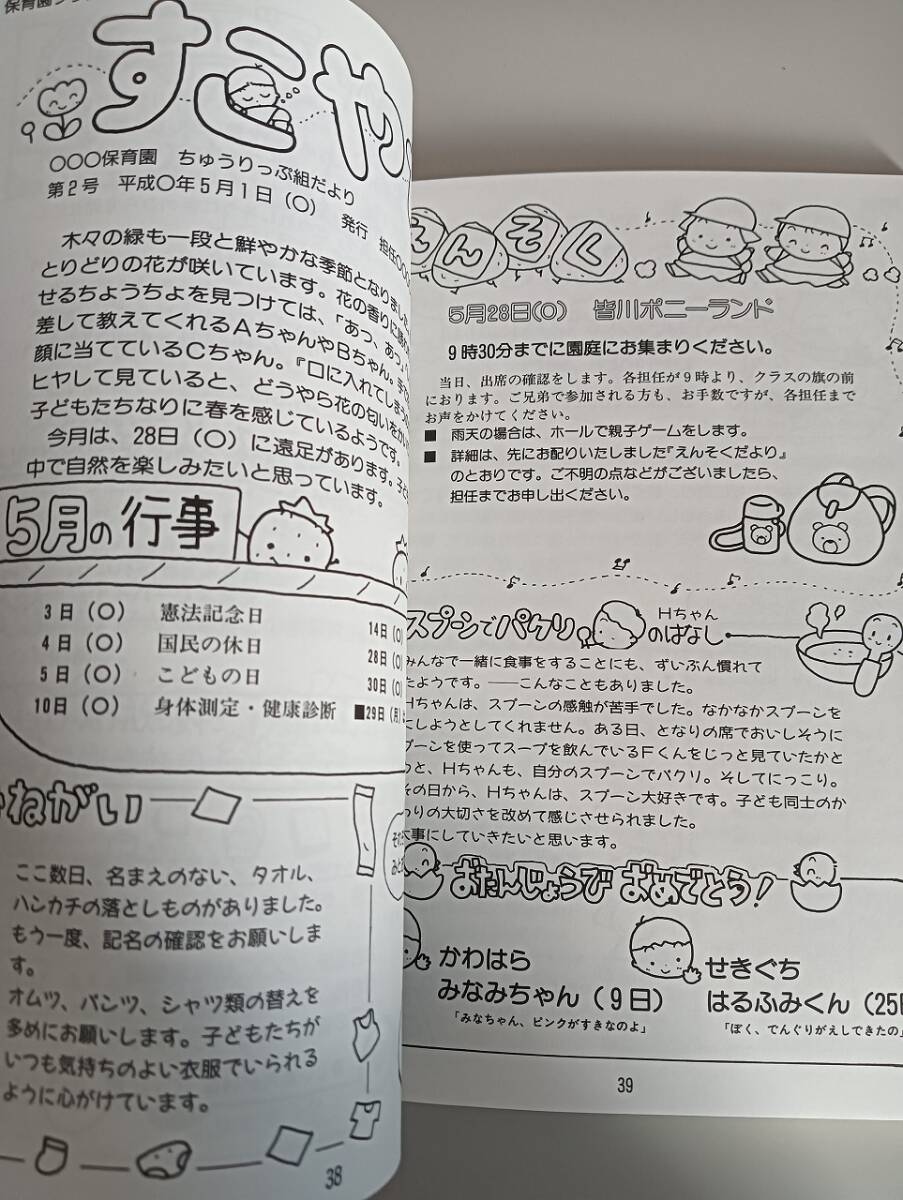 保育園
すこや
〇〇〇保育園 ちゅうりっぷ組だより
第2号 平成〇年5月1日(〇) 発行 担任〇〇〇
木々の緑も一段と鮮やかな季節となりました
とりどりの花が咲いています。花の香りに
せるちょうちょを見つけては、「あっ、あっ」
差して教えてくれるAちゃんやBちゃん。
顔に当てているCちゃん。『口に入れてしまう
ヒヤして見ていると、どうやら花の匂いを
子どもたちなりに春を感じているようです。
今月は、28日(〇)に遠足があります。子ど
中で自然を楽しみたいと思っています。
5月の行事
3日(〇) 憲法記念日
4日(〇) 国民の休日
5日(〇) こどもの日
10日(〇) 身体測定・健康診断
14日(〇)
28日(〇)
30日(〇)
■29日(月)は
おねがい
ここ数日、名まえのない、タオル、
ハンカチの落としものがありました。
もう一度、記名の確認をお願いしま
す。
オムツ、パンツ、シャツ類の替えを
多めにお願いします。子どもたちが
いつも気持ちのよい衣服でいられる
ように心がけています。
38
えんそく
5月28日(〇) 皆川ポニーランド
9時30分までに園庭にお集まりください。
当日、出席の確認をします。各担任が9時より、クラスの旗の前
におります。ご兄弟で参加される方も、お手数ですが、各担任まで
お声をかけてください。
■ 雨天の場合は、ホールで親子ゲームをします。
■ 詳細は、先にお配りいたしました『えんそくだより』
のとおりです。ご不明の点などがございましたら、
担任までお申し出ください。
スプーンでパクリ
Hちゃん
のはなし
みんなで一緒に食事をすることにも、ずいぶん慣れて
たようです。――こんなこともありました。
Hちゃんは、スプーンの感触が苦手でした。なかなかスプーンを
にしようとしてくれません。ある日、となりの席でおいしそうに
プーンを使ってスープを飲んでいるFくんをじっと見ていたかと
っと、Hちゃんも、自分のスプーンでパクリ。そしてにっこり。
その日から、Hちゃんは、スプーン大好きです。子ども同士のか
わりの大切さを改めて感じさせられました。
大事にしていきたいと思います。
おたんじょうび おめでとう!
かわはら
みなみちゃん(9日)
「みなちゃん、ピンクがすきなのよ」
せきぐち
はるふみくん(25日
「ぼく、でんぐりがえしできたの」
39